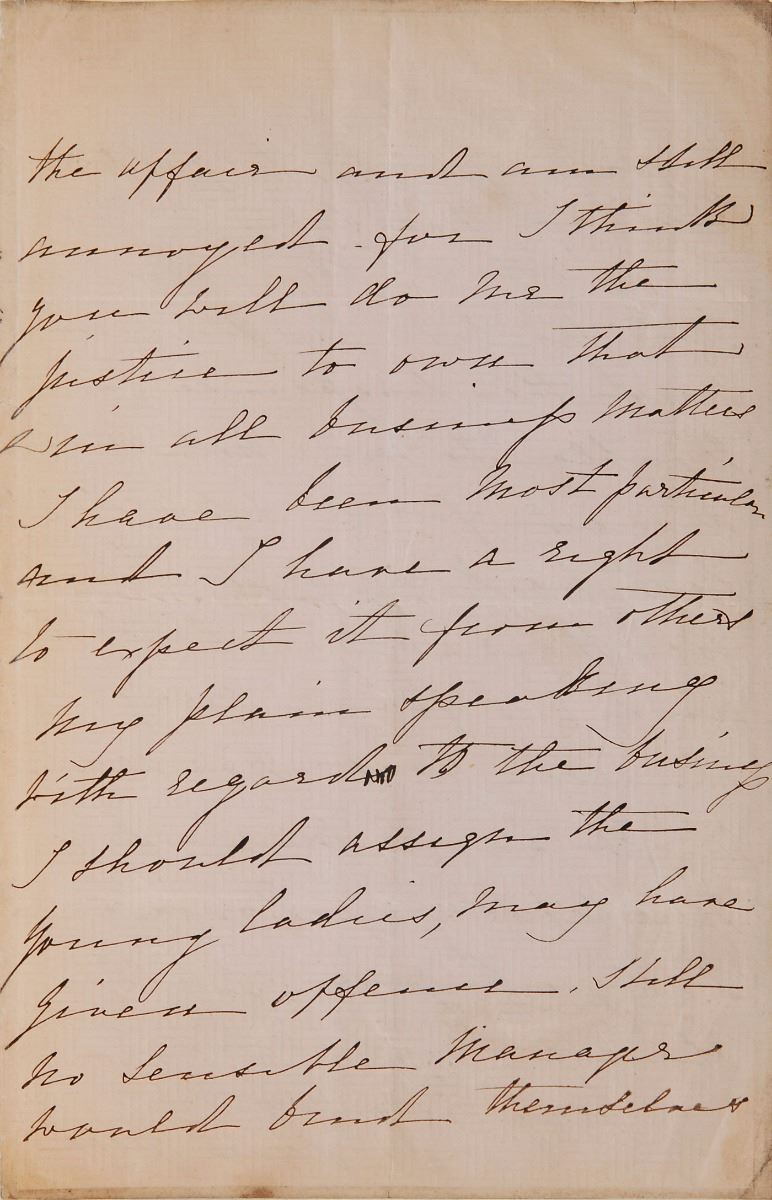 the affair and am still
annoyed for I think
you will do me the
justice to own that
in all business matters
I have been most particular
and I have a right
to expect it from others
My plain speaking
with regard to the business
I should assign the
young ladies, may have
given offense. Still
no sensible Manager
would bind themselves